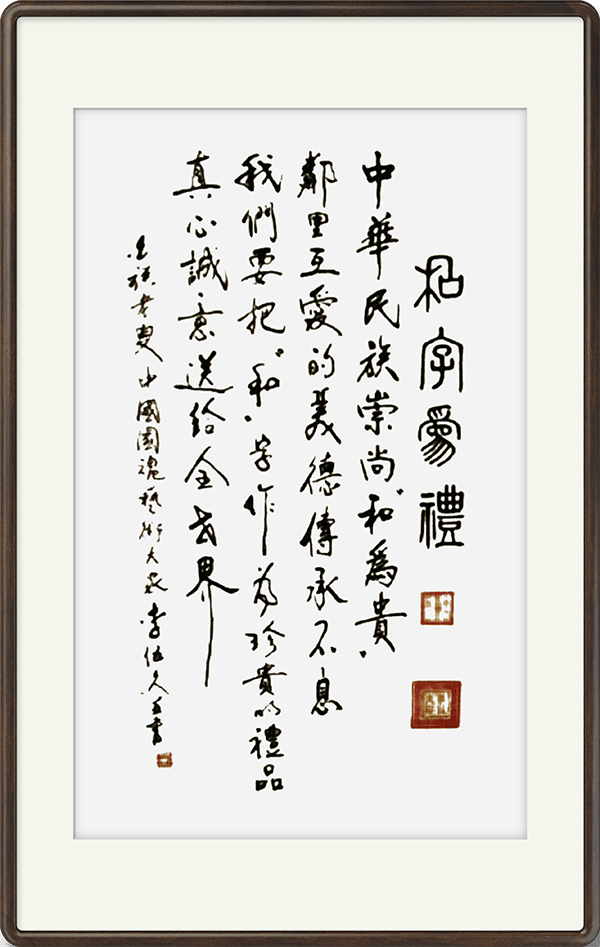 和字為禮
中華民族崇尚“和為貴”
鄰里互愛的美德傳承不息
我們要把“和”字作為珍貴的禮品
真心誠意送給全世界
族老叟中國國魂藝術大家李伍久書